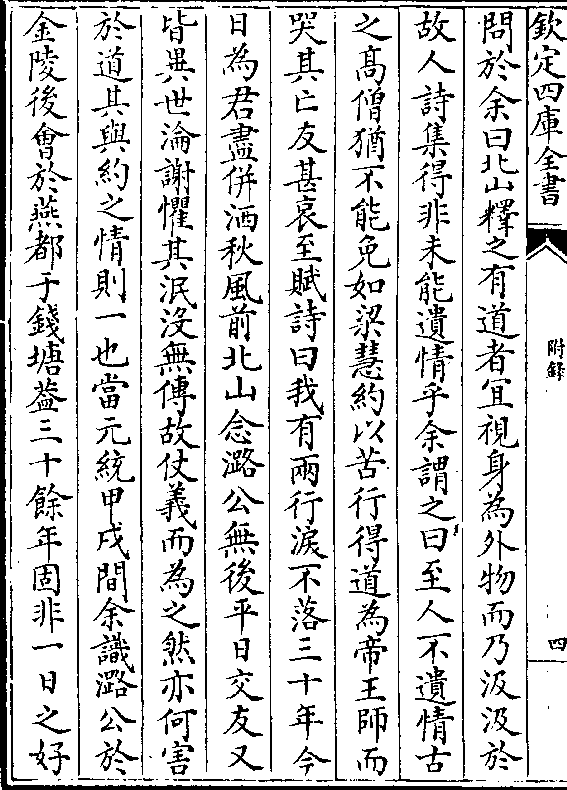 欽定四庫全書
附錄
四
問於余曰北山釋之有道者宜視身為外物而乃汲汲於
故人詩集得非未能遺情乎余謂之曰至人不遺情古
之髙僧猶不能免如梁慧約以苦行得道為帝王師而
哭其亡友甚哀至賦詩曰我有兩行淚不落三十年今
日為君盡併洒秋風前北山念潞公無後平日交友又
皆異世淪謝懼其泯沒無傳故仗義而為之然亦何害
於道其與約之情則一也當元統甲戌間余識潞公於
金陵後會於燕都于錢塘葢三十餘年固非一日之好